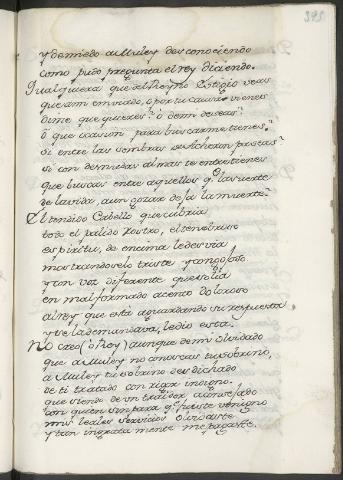 395
y de miedo a Muley desconociendo
como pudo pregunta el rey diciendo.
Qualquiera que al Reyno Estigio veas
que am enviado, o por tu causa vienes
dime que quieres? o de mi deseas?
o que ocasion para buscarme tienes?
si entre las sombras de Acheron paseas
si con desnudas almas te entretienes
que buscas entre aquellos q̃ la suerte
de la vida, aun gozar desa la muerte
El tendido Cabello que cubria
todo el palido Rostro, el tenebroso
espiritu, de encima le desvia
mostrandoselo triste y angojoso
y con voz diferente que solia
en mal formado acento doloroso
al rey que esta aguardando su respuesta
y se la demandava, le dio esta.
No creo (ò Rey) aunque de mi olvidado
que a Muley no conozcas tu sobrino,
a Muley tu sobrino desdichado
de ti tratado con rigor indigno.
que siendo de un traidor aconsejado
con quien sin tasa q̃ fueste venigno
mis leales servicios olvidaste
y tan ingrata mente me pagaste.